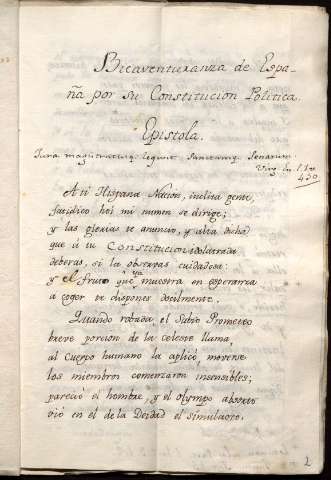 Bieaventuranza de Espa-
ña por su Constitucion Politica.
Epistola.
Jura magistratusq. legunt sanctumq. Senatum.
Virg. En. l. 1. v.
430.
A ti Hispana Nacion, inclita gente,
fatidico hoi mi numen se dirige;
y las glorias te anuncio, y alta dicha
que á tu Constitucion idolatrada
deberas, si la observas cuidadosa:
y el fruto q.e ya muestra en esperanza
a coger te dispones docilmente.
Quando robada el Sabio Prometeo
breve porcion de la celeste llama,
al Cuerpo humano la aplicó, moverse
los miembros comenzaron insensibles;
pareció el hombre, y el olympo absorto
vió en el de la Deidad el simulacro.
2